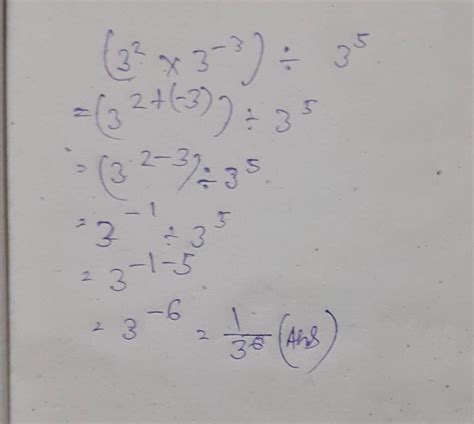 (3² × 3⁻³) ÷ 3⁵
= (3²⁺⁽⁻³⁾) ÷ 3⁵
= (3²⁻³) ÷ 3⁵
= 3⁻¹ ÷ 3⁵
= 3⁻¹⁻⁵
= 3⁻⁶ = 1/3⁶ (Ans)